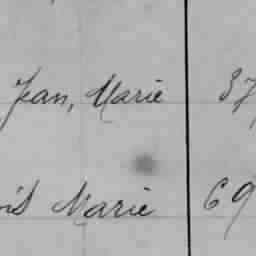 Jean, Marie 37
ois Marie 69